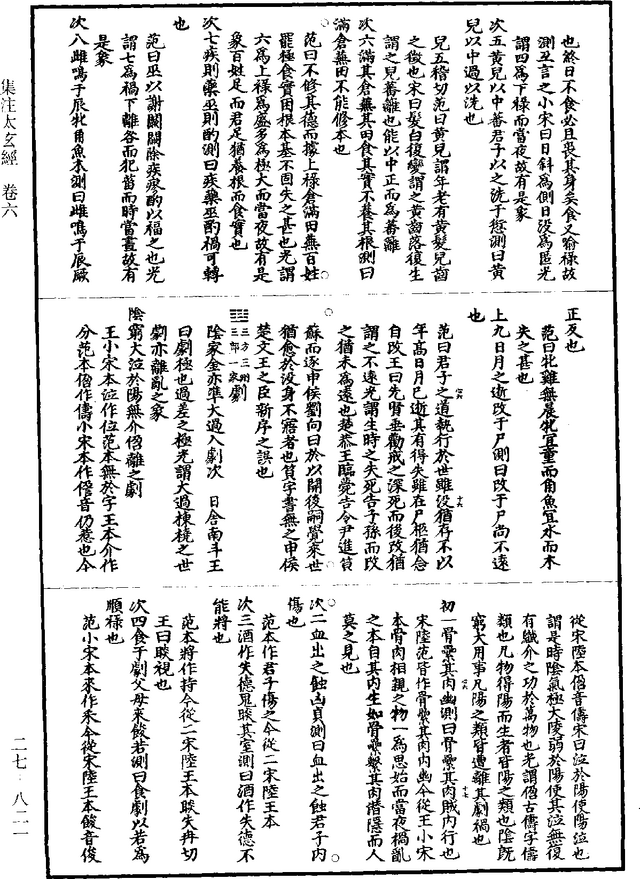 集注太玄經 卷六
也終日不食必且喪其身矣食又喻祿故
測互言之小宋曰日斜為側日没為匿光
謂四為下祿而當夜故有是象
次五黃兒以中蕃君子以之洗于愆測曰黃
兒以中過以洗也
兒五稽切范曰黃兒謂年老有黃髮兒齒
之徵也宋曰髮白復變謂之黃齒落復生
謂之兒蕃離也能以中正而為蕃離
次六滿其倉蕪其田食其實不養其根測曰
滿倉蕪田不能修本也
范曰不修其德而據上祿倉滿田蕪百姓
罷極食實困根本基不固失之甚也光謂
六為上祿為盛多為極大而當夜故有是
象百姓足而君足猶養根而食實也
次七疾則藥巫則酌測曰疾藥巫酌禍可轉
也
范曰巫以謝闕闢除疾瘳酌以福之也光
謂七為禍下離咎而犯菑而時當晝故有
是象
次八雌鳴于辰牝角魚木測曰雌鳴于辰厥
正反也
范曰牝雞無晨牝宜童而角魚宜水而木
失之甚也
上九日月之逝改于尸測曰改于尸尚不遠
也
范曰君子之道執行於世雖没猶存不以
年髙日月已逝其有得失雖在尸柩猶念
自改王曰先賢垂勸戒之深死而後改猶
謂之不遠光謂生時之失死告子孫而改
之猶未為遠也楚恭王臨薨告令尹進筦
蘇而逐申侯劉向曰於以開後嗣覺來世
猶愈於没身不寤者也筦字書無之申侯
楚文王之臣新序之誤也
三方三州三部一家劇
陰家金亦準大過入劇次 日舍南斗王
曰劇極也過差之極光謂大過棟橈之世
劇亦離亂之象
陰窮大泣於陽無介俦離之劇
王小宋本泣作位范本無於字王本介作
分范本俦作儔小宋本作僽音仍惹也今
從宋陸本俦音儔宋曰泣於陽使陽泣也
謂是時陰氣極大陵弱於陽使其泣無復
有纖介之功於萬物也光謂俦古儔字儔
類也凡物得陽而生者皆陽之類也陰旣
窮大用事凡陽之類皆遭離其劇禍也
初一骨纍其肉幽測曰骨纍其肉賊内行也
宋陸范皆作骨纍其肉内幽今從王小宋
本骨肉相親之物一為思始而當夜禍亂
之本自其内生如骨纍繫其肉㬱隱而人
莫之見也
次二血出之蝕凶貞測曰血出之蝕君子内
傷也
范本作君子傷之今從二宋陸王本
次三酒作失德鬼睒其室測曰酒作失德不
能將也
范本將作持今從二宋陸王本睒失冉切
王曰睒視也
次四食于劇父母采餕若測曰食劇以若為
順祿也
范小宋本來作釆今從宋陸王本餕音俊
二七·八二一